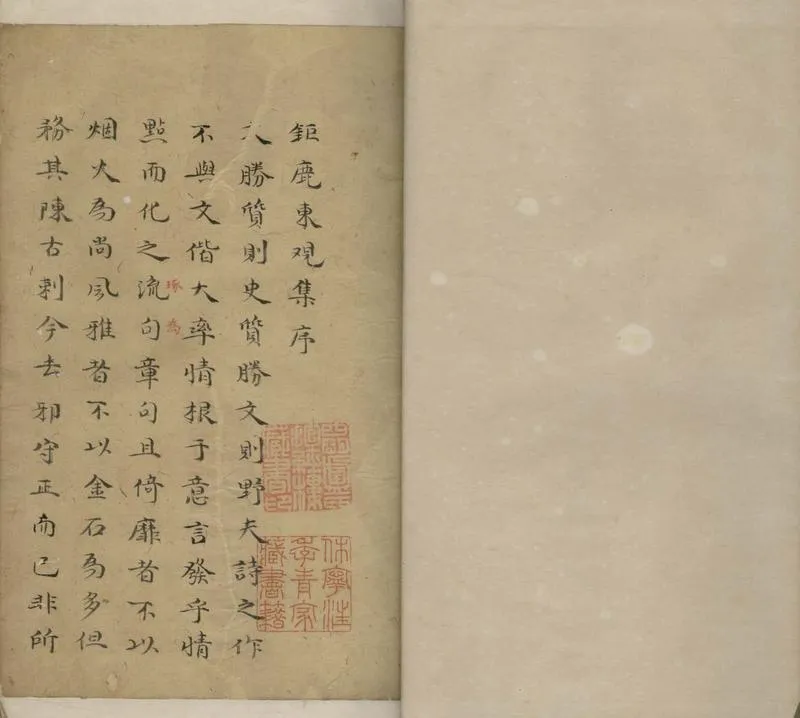 鉅鹿東观集序
文勝質則史質勝文則野夫詩之作
不與文偕大率情根于意言發乎情
點而化之流句章句且倚靡者不以
琢
為
烟火為尚風雅者不以金石為多但
務其陳古刺今去邪守正而已非所
休寧汪
季青家
藏書籍